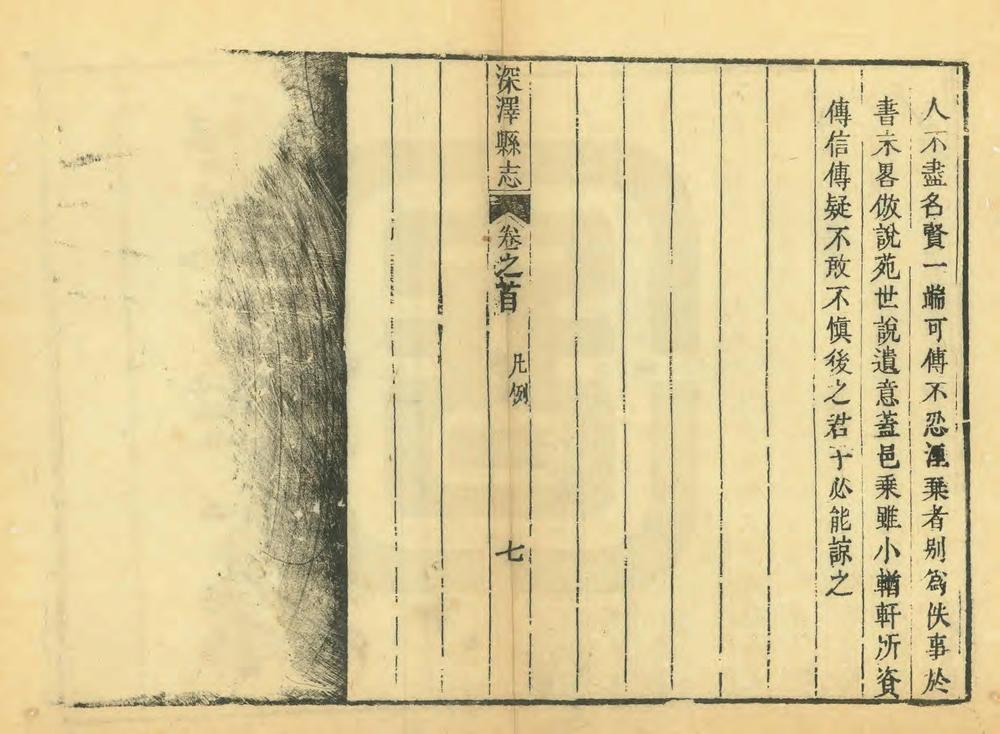 人不盡名賢一端可傳不忍湮棄者别爲佚事於
書末畧倣說苑世說遺意蓋邑乘雖小輶軒所資
傳信傳疑不敢不愼後之君子必能諒之
深澤縣志
卷之首
凡例
七